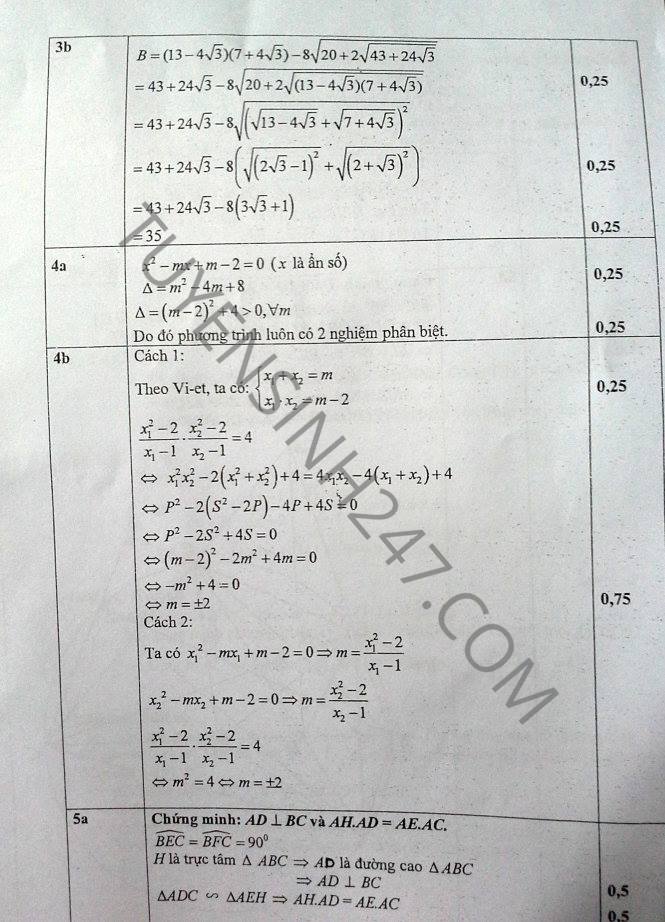 3b
B = (13 − 4√3)(7 + 4√3) − 8√(20 + 2√(43 + 24√3))
= 43 + 24√3 − 8√(20 + 2√((13 − 4√3)(7 + 4√3)))
0,25
= 43 + 24√3 − 8√((√(13 − 4√3) + √(7 + 4√3))²)
= 43 + 24√3 − 8(√((2√3 − 1)²) + √((2 + √3)²))
0,25
= 43 + 24√3 − 8(3√3 + 1)
= 35
0,25
4a
x² − mx + m − 2 = 0 (x là ẩn số)
0,25
Δ = m² − 4m + 8
Δ = (m − 2)² + 4 > 0, ∀m
Do đó phương trình luôn có 2 nghiệm phân biệt.
0,25
4b
Cách 1:
Theo Vi-et, ta có: { x₁ + x₂ = m
x₁ . x₂ = m − 2
0,25
(x₁² − 2)/(x₁ − 1) . (x₂² − 2)/(x₂ − 1) = 4
⇔ x₁²x₂² − 2(x₁² + x₂²) + 4 = 4x₁x₂ − 4(x₁ + x₂) + 4
⇔ P² − 2(S² − 2P) − 4P + 4S = 0
⇔ P² − 2S² + 4S = 0
⇔ (m − 2)² − 2m² + 4m = 0
⇔ −m² + 4 = 0
⇔ m = ±2
0,75
Cách 2:
Ta có x₁² − mx₁ + m − 2 = 0 ⇒ m = (x₁² − 2)/(x₁ − 1)
x₂² − mx₂ + m − 2 = 0 ⇒ m = (x₂² − 2)/(x₂ − 1)
(x₁² − 2)/(x₁ − 1) . (x₂² − 2)/(x₂ − 1) = 4
⇔ m² = 4 ⇔ m = ±2
5a
Chứng minh: AD ⊥ BC và AH.AD = AE.AC.
BEC = BFC = 90⁰
H là trực tâm Δ ABC ⇒ AD là đường cao ΔABC
⇒ AD ⊥ BC
0,5
ΔADC ∽ ΔAEH ⇒ AH.AD = AE.AC
0,5
TUYENSINH247.COM